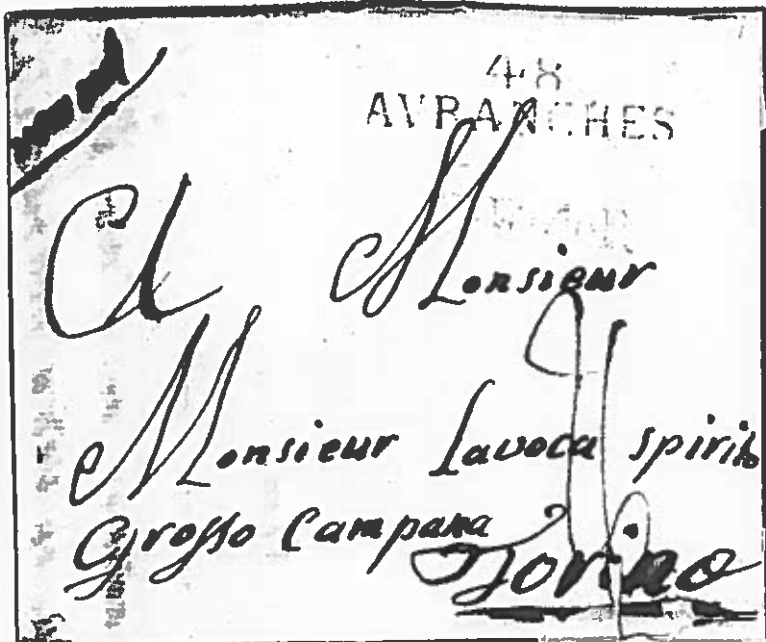 48
AVRANCHES
A Monsieur
Monsieur Lavoca Spirito
Grosso Campana
Torino